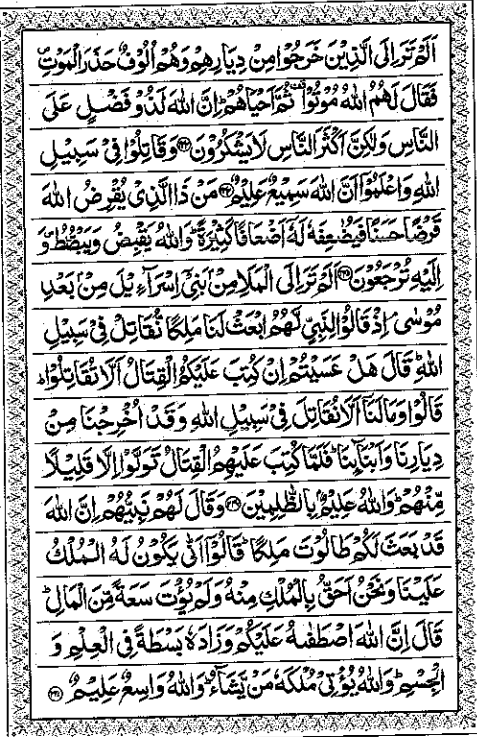 اَلَمْ تَرَ اِلَى الَّذِيْنَ خَرَجُوْا مِنْ دِيَارِهِمْ وَهُمْ اُلُوْفٌ حَذَرَ الْمَوْتِ
فَقَالَ لَهُمُ اللّٰهُ مُوْتُوْا ثُمَّ اَحْيَاهُمْ اِنَّ اللّٰهَ لَذُوْ فَضْلٍ عَلَى
النَّاسِ وَلٰكِنَّ اَكْثَرَ النَّاسِ لَا يَشْكُرُوْنَ ﴿۲۴۳﴾ وَقَاتِلُوْا فِيْ سَبِيْلِ
اللّٰهِ وَاعْلَمُوْٓا اَنَّ اللّٰهَ سَمِيْعٌ عَلِيْمٌ ﴿۲۴۴﴾ مَنْ ذَا الَّذِيْ يُقْرِضُ اللّٰهَ
قَرْضًا حَسَنًا فَيُضٰعِفَهٗ لَهٗٓ اَضْعَافًا كَثِيْرَةً ؕ وَاللّٰهُ يَقْبِضُ وَيَبْصُۜطُ ۪ وَ
اِلَيْهِ تُرْجَعُوْنَ ﴿۲۴۵﴾ اَلَمْ تَرَ اِلَى الْمَلَاِ مِنْۢ بَنِيْٓ اِسْرَآءِيْلَ مِنْۢ بَعْدِ
مُوْسٰى ۘ اِذْ قَالُوْا لِنَبِيٍّ لَّهُمُ ابْعَثْ لَنَا مَلِكًا نُّقَاتِلْ فِيْ سَبِيْلِ
اللّٰهِ ؕ قَالَ هَلْ عَسَيْتُمْ اِنْ كُتِبَ عَلَيْكُمُ الْقِتَالُ اَلَّا تُقَاتِلُوْا ؕ
قَالُوْا وَمَا لَنَآ اَلَّا نُقَاتِلَ فِيْ سَبِيْلِ اللّٰهِ وَقَدْ اُخْرِجْنَا مِنْ
دِيَارِنَا وَاَبْنَآئِنَا ؕ فَلَمَّا كُتِبَ عَلَيْهِمُ الْقِتَالُ تَوَلَّوْا اِلَّا قَلِيْلًا
مِّنْهُمْ ؕ وَاللّٰهُ عَلِيْمٌۢ بِالظّٰلِمِيْنَ ﴿۲۴۶﴾ وَقَالَ لَهُمْ نَبِيُّهُمْ اِنَّ اللّٰهَ
قَدْ بَعَثَ لَكُمْ طَالُوْتَ مَلِكًا ؕ قَالُوْٓا اَنّٰى يَكُوْنُ لَهُ الْمُلْكُ
عَلَيْنَا وَنَحْنُ اَحَقُّ بِالْمُلْكِ مِنْهُ وَلَمْ يُؤْتَ سَعَةً مِّنَ الْمَالِ ؕ
قَالَ اِنَّ اللّٰهَ اصْطَفٰىهُ عَلَيْكُمْ وَزَادَهٗ بَسْطَةً فِي الْعِلْمِ وَ
الْجِسْمِ ؕ وَاللّٰهُ يُؤْتِيْ مُلْكَهٗ مَنْ يَّشَآءُ ؕ وَاللّٰهُ وَاسِعٌ عَلِيْمٌ ﴿۲۴۷﴾